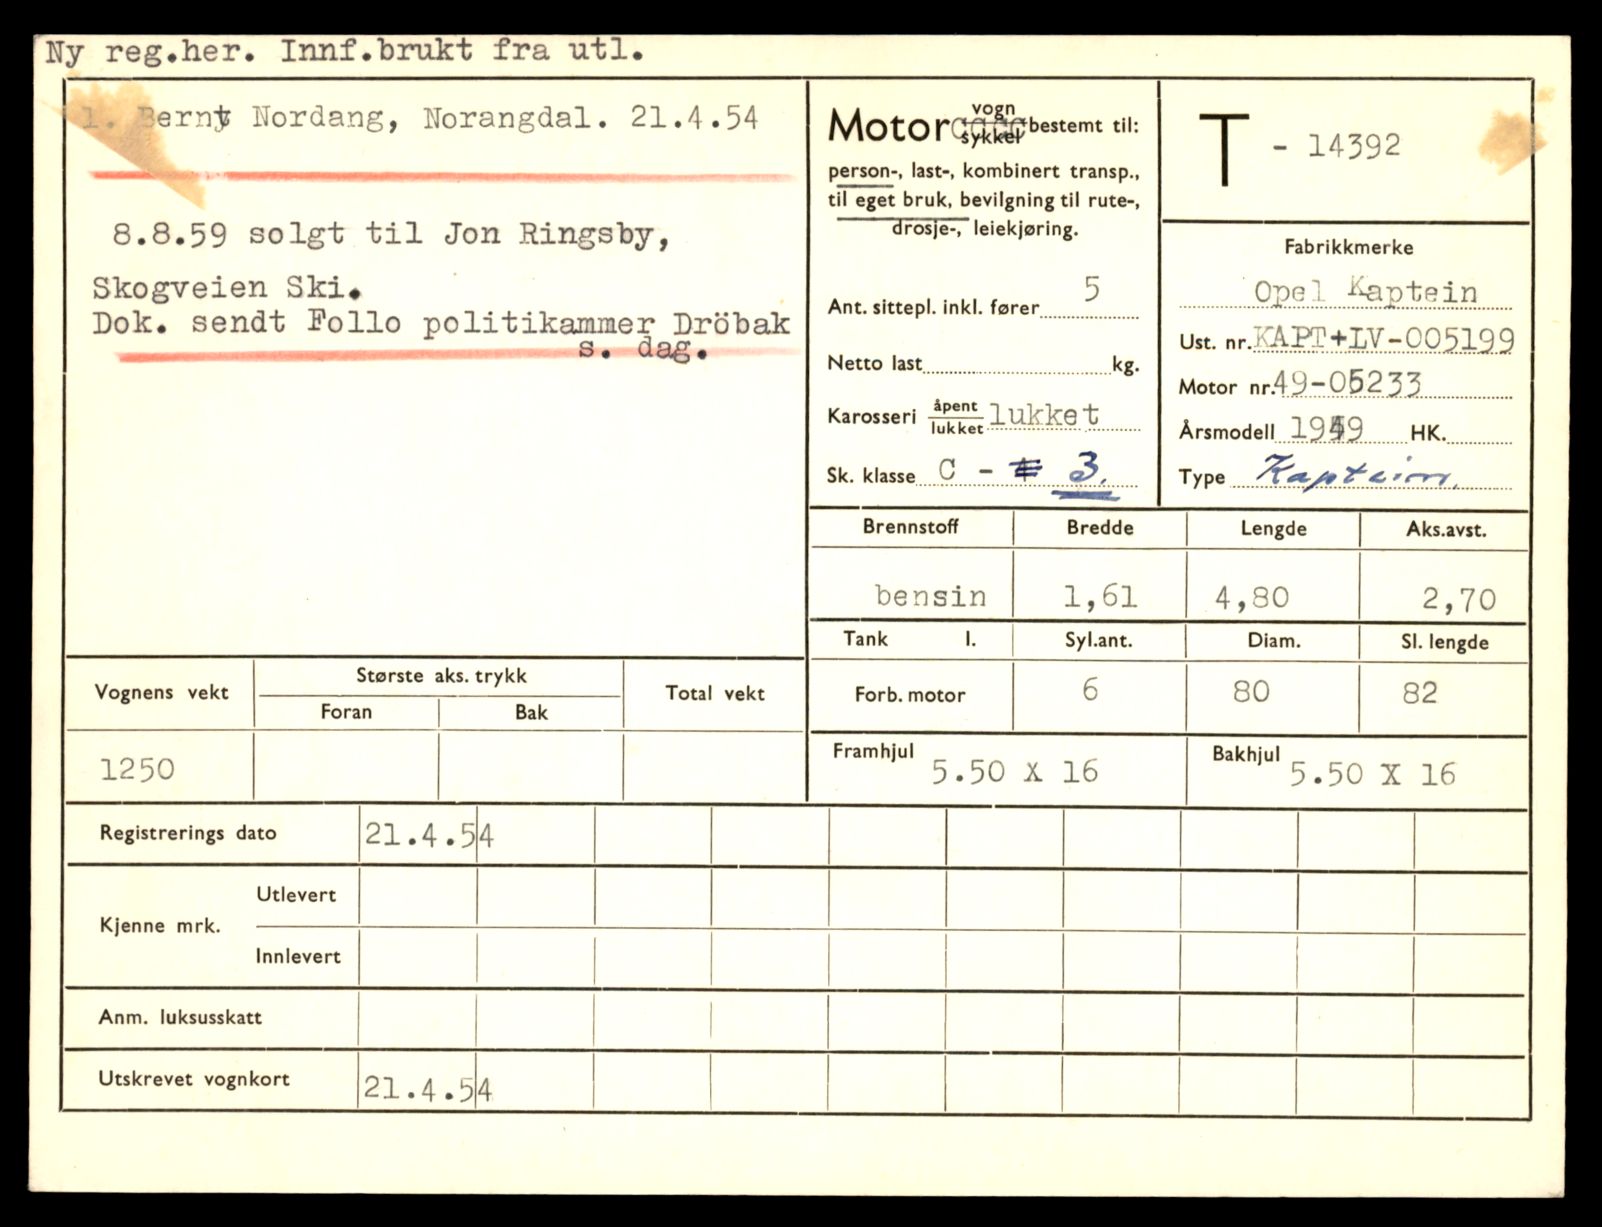 Ny reg.her. Innf.brukt fra utl.
1. Bernt Nordang, Norangdal. 21.4.54
8.8.59 solgt til Jon Ringsby,
Skogveien Ski.
Dok. sendt Follo politikammer Dröbak
s. dag.
Motor vogn sykkel bestemt til:
person-, last-, kombinert transp.,
til eget bruk, bevilgning til rute-,
drosje-, leiekjøring.
Ant. sittepl. inkl. fører 5
Netto last kg.
Karosseri åpent lukket lukket
Sk. klasse C - 3.
T - 14392
Fabrikkmerke
Opel Kaptein
Ust. nr. KAPT+LV-005199
Motor nr. 49-05233
Årsmodell 1949 HK.
Type Kaptein.
Brennstoff Bredde Lengde Aks.avst.
bensin 1,61 4,80 2,70
Tank l. Syl.ant. Diam. Sl. lengde
Forb. motor 6 80 82
Framhjul 5.50 X 16 Bakhjul 5.50 X 16
Vognens vekt Største aks. trykk Total vekt
Foran Bak
1250
Registrerings dato 21.4.54
Kjenne mrk. Utlevert
Innlevert
Anm. luksusskatt
Utskrevet vognkort 21.4.54